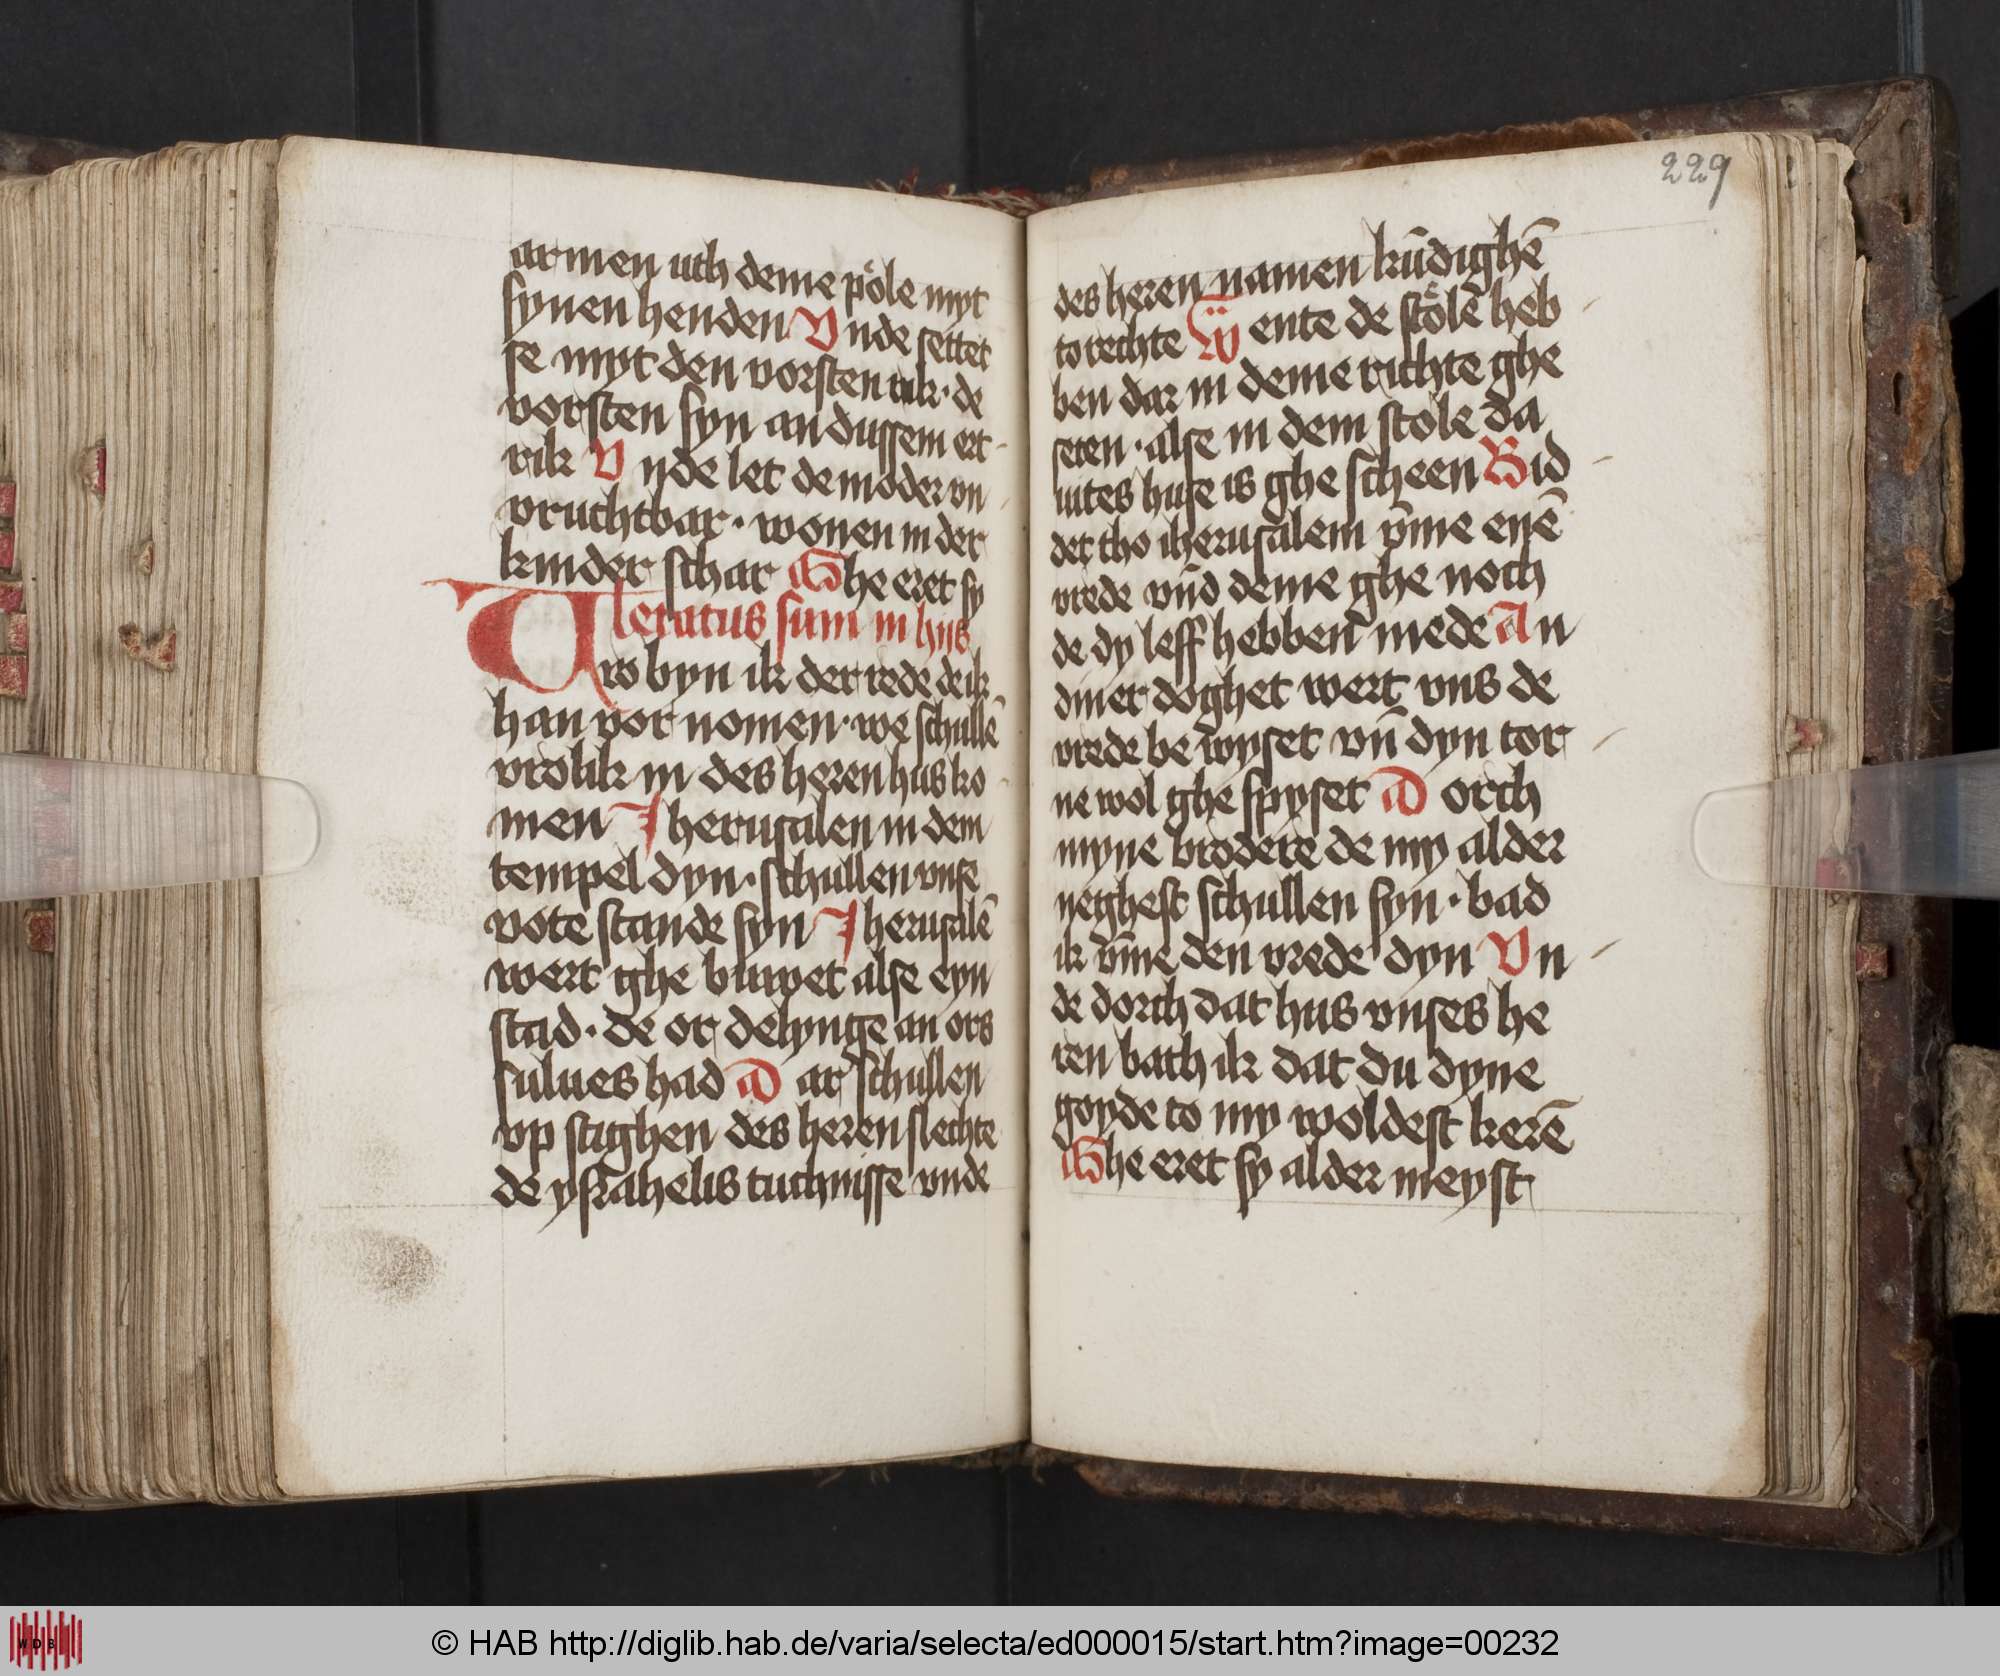 armen uth deme poͤle myt
synen henden Vnde settet
se myt den vorsten rik · de
vorsten syn an dussem ert
rik Vnde let de moder vn
vruchtbar · wonen in der
kinder schar Ghe eret sy
Letatus sum in hijs
Vro byn ik der rede de ik
han vor nomen · we schullē
vrolik in des heren hus ko
men Jherusalen in dem
tempel dyn · schullen vnse
vote stande syn Jherusalē
wert ghe buwet alse eyn
stad · de or delynge an ors
sulues had Dar schullen
vp stighen des heren slechte
de ysrahelis tuchnisse vnde
229
des heren namen kūdighē
to rechte Wente de stoͤlē heb
ben dar in deme richte ghe
seten · alse in dem stole da
uites huse is ghe scheen Bid
det tho iherusalem v̄me enē
vrede vn̄d deme ghe noch
de dy leff hebben mede An
diner doghet wert vns de
vrede be wyset vn̄ dyn tor
ne wol ghe spyset Dorch
myne brodere de my alder
neghest schullen syn · bad
ik v̄me den vrede dyn Vn
de dorch dat hus vnses he
ren bath ik dat du dyne
goyde to my woldest kerē
Ghe eret sy alder meyst
WDB
© HAB http://diglib.hab.de/varia/selecta/ed000015/start.htm?image=00232